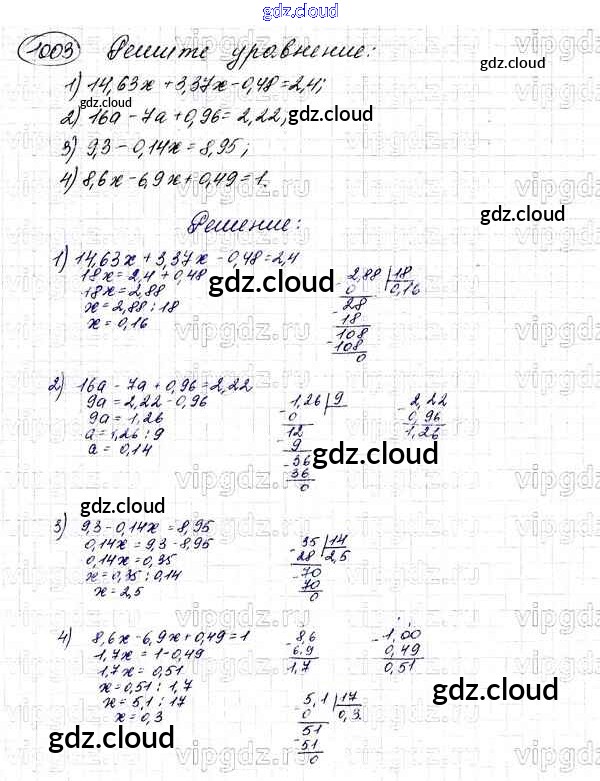 gdz.cloud
gdz.cloud
1003 Решите уравнение:
1) 14,63x + 3,37x - 0,48 = 2,4;
2) 16a - 7a + 0,96 = 2,22;
3) 9,3 - 0,14x = 8,95;
4) 8,6x - 6,9x + 0,49 = 1.
Решение:
1) 14,63x + 3,37x - 0,48 = 2,4
18x = 2,4 + 0,48
18x = 2,88
x = 2,88 : 18
x = 0,16
2,88 | 18
0 0,16
28
18
108
108
0
2) 16a - 7a + 0,96 = 2,22
9a = 2,22 - 0,96
9a = 1,26
a = 1,26 : 9
a = 0,14
1,26 | 9
0
12
9
36
36
0
2,22
0,96
1,26
3) 9,3 - 0,14x = 8,95
0,14x = 9,3 - 8,95
0,14x = 0,35
x = 0,35 : 0,14
x = 2,5
35 | 14
28 2,5
70
70
0
4) 8,6x - 6,9x + 0,49 = 1
1,7x = 1 - 0,49
1,7x = 0,51
x = 0,51 : 1,7
x = 5,1 : 17
x = 0,3
8,6
6,9
1,7
1,00
0,49
0,51
5,1 | 17
0 0,3
51
51
0
gdz.cloud
gdz.cloud
gdz.cloud
gdz.cloud
gdz.cloud
gdz.cloud
gdz.cloud
gdz.cloud
gdz.cloud
gdz.cloud
gdz.cloud
vipgdz.ru